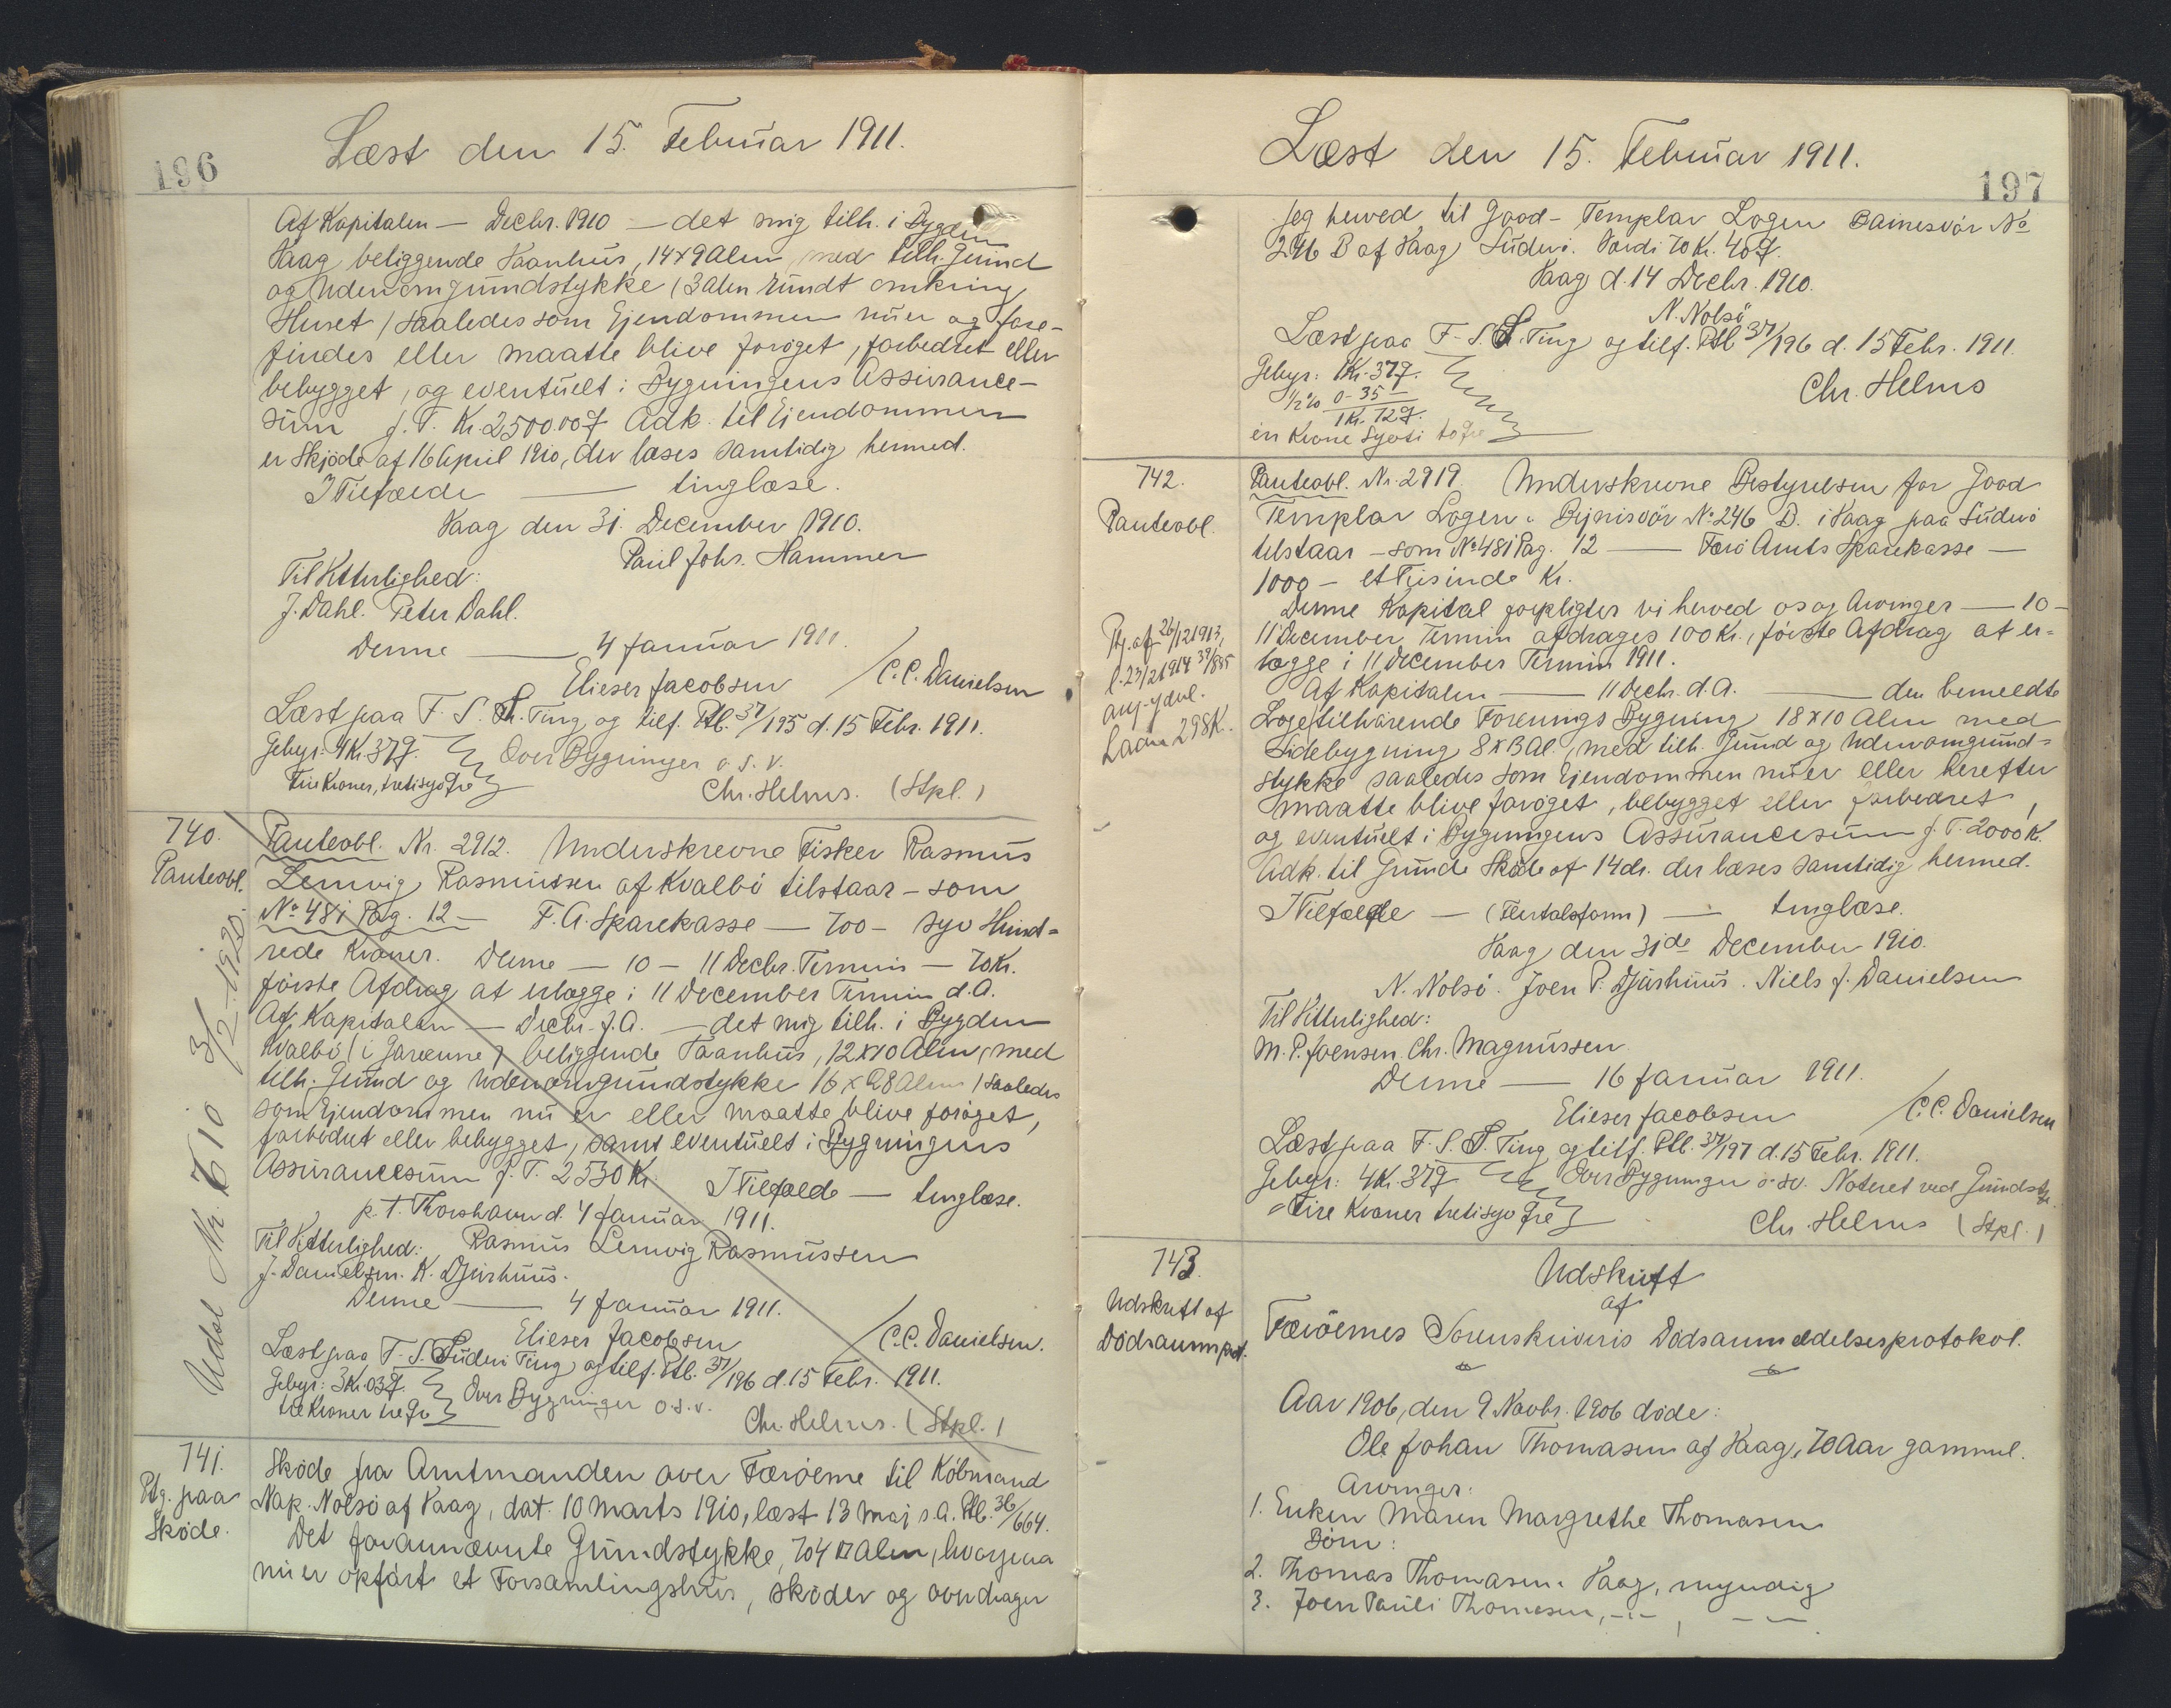 196
Læst den 15. Februar 1911.
Af Kapitalen — Decbr. 1910 — det mig tilh. i Bygden
Vaag beliggende Vaanhus, 14x9 Alen med tilh. Grund
og Udenomgrundstykke (3 Alen rundt omkring
Huset) saaledes som Ejendommen nu er og fore-
findes eller maatte blive forøget, forbedret eller
bebygget, og eventuelt i Bygningens Assurance-
sum p. T. Kr. 2500.00 Ø Adk. til Ejendommen
er Skjöde af 16 April 1910, der læses samtidig hermed.
I Tilfælde — tinglæse.
Vaag den 31. December 1910.
Paul Johs. Hammer
Til Vitterlighed:
J. Dahl. Peter Dahl.
Denne — 4 Januar 1911.
Elieser Jacobsen / C. C. Danielsen
Læst paa F. S. Th. Ting og tilf. Ptl. 37/195 d. 15 Febr. 1911.
Gebyr: 4 Kr. 37 Ø. Over Bygninger o. s. v.
Fire Kroner, tretisyv Øre
Chr. Helms. (Stpl.)
740.
Panteobl.
Panteobl. Nr. 2912. Underskrevne Fisker Rasmus
Lemvig Rasmussen af Kvalbö tilstaar – som
No 48 i Pag. 12 — F. A. Sparekasse — 700 – syv Hund-
rede Kroner. Denne — 10 — 11 Decbr. Termin — 70 Kr.
første Afdrag at erlægge i 11 December Termin d. A.
Af Kapitalen — Decbr. f. A. — det mig tilh. i Bygden
Kvalbö (i Gareme) beliggende Vaanhus, 12x10 Alen, med
tilh. Grund og Udenomgrundstykke 16 x 28 Alen (saaledes
som Ejendommen nu er eller maatte blive forøget,
forbedret eller bebygget, samt eventuelt i Bygningens
Assurancesum p. T. 2530 Kr. I Tilfælde — tinglæse.
p. t. Thorshavn d. 4 Januar 1911.
Til Vitterlighed: Rasmus Lemvig Rasmussen
J. Danielsen. K. Djurhuus.
Denne — 4 Januar 1911.
Elieser Jacobsen / C. C. Danielsen.
Læst paa F. S. Süderö Ting og tilf. Ptl. 37/196 d. 15 Febr. 1911.
Gebyr: 3 Kr. 03 Ø. Over Bygninger o. s. v.
tre Kroner tre Øre
Chr. Helms. (Stpl.)
Udsl Nr. 610 3/2 1920.
741.
Ptg. paa
Sköde.
Sköde fra Amtmanden over Færöerne til Köbmand
Nap. Nolsö af Vaag, dat. 10 Marts 1910, læst 13 Maj s. A. Ptl. 36/664.
Det forannævnte Grundstykke, 704 □ Alen, hvorpaa
nu er opført et Forsamlingshus, sköder og overdrager
197
Læst den 15. Februar 1911.
jeg herved til Good-Templar Logen Bainesvör No
246 B af Vaag Süderö. Værdi 70 Kr. 40 Ø.
Vaag d. 14 Decbr. 1910.
N. Nolsö
Læst paa F. S. S. Ting og tilf. Ptl 37/196 d. 15 Febr. 1911.
Gebyr: 1 Kr. 37 Ø.
1/2 % 0 – 35 —
1 Kr. 72 Ø.
en Krone Syvti to Øre
Chr. Helms
742.
Panteobl.
Panteobl. Nr. 2919. Underskrevne Bestyrelsen for Good
Templar Logen Bejnisvör No 246 B. i Vaag paa Süderö
tilstaar – som No 48 i Pag. 12 — Færö Amts Sparekasse —
1000 – et Tusinde Kr.
Denne Kapital forpligter vi herved os og Arvinger — 10 —
11 December Termin afdrages 100 Kr., første Afdrag at er-
lægge i 11 December Termin 1911.
Af Kapitalen — 11 Decbr. d. A. — den bemeldte
Loge tilhørende Forenings Bygning 18 x 10 Alen med
Sidebygning 8 x 3 Al., med tilh. Grund og Udenomgrund-
stykke saaledes som Ejendommen nu er eller herefter
maatte blive forøget, bebygget eller forbedret,
og eventuelt i Bygningens Assurancesum p. T. 2000 K.
Adk. til Grunde Sköde af 14 ds. der læses samtidig hermed.
I Tilfælde — (Flertalsform) — tinglæse.
Vaag den 31 de December 1910.
N. Nolsö. Joen P. Djurhuus. Niels J. Danielsen
Til Vitterlighed:
M. P. Joensen. Chr. Magnussen
Denne — 16 Januar 1911.
Elieser Jacobsen / C. C. Danielsen
Læst paa F. S. S. Ting og tilf. Ptl. 37/197 d. 15 Febr. 1911.
Gebyr: 4 Kr. 37 Ø Over Bygninger o. sv. Noteret ved Grundstk.
Fire Kroner tretisyv Øre
Chr. Helms (Stpl.)
Ptg. af 26/12 1913,
l. 23/2 1914 39/885
ang. ydul.
Ladn 298 K.
743.
Udskrift af
Dödsanmprot.
Udskrift
af
Færöernes Sorenskriveris Dödsanmeldelsesprotokol.
Aar 1906, den 9 Novbr. 1906 döde:
Ole Johan Thomasen af Vaag, 70 Aar gammel.
Arvinger:
1. Enken Maren Margrethe Thomasen
Börn:
2. Thomas Thomasen, Vaag, myndig
3. Joen Pauli Thomasen, –"– , —"—